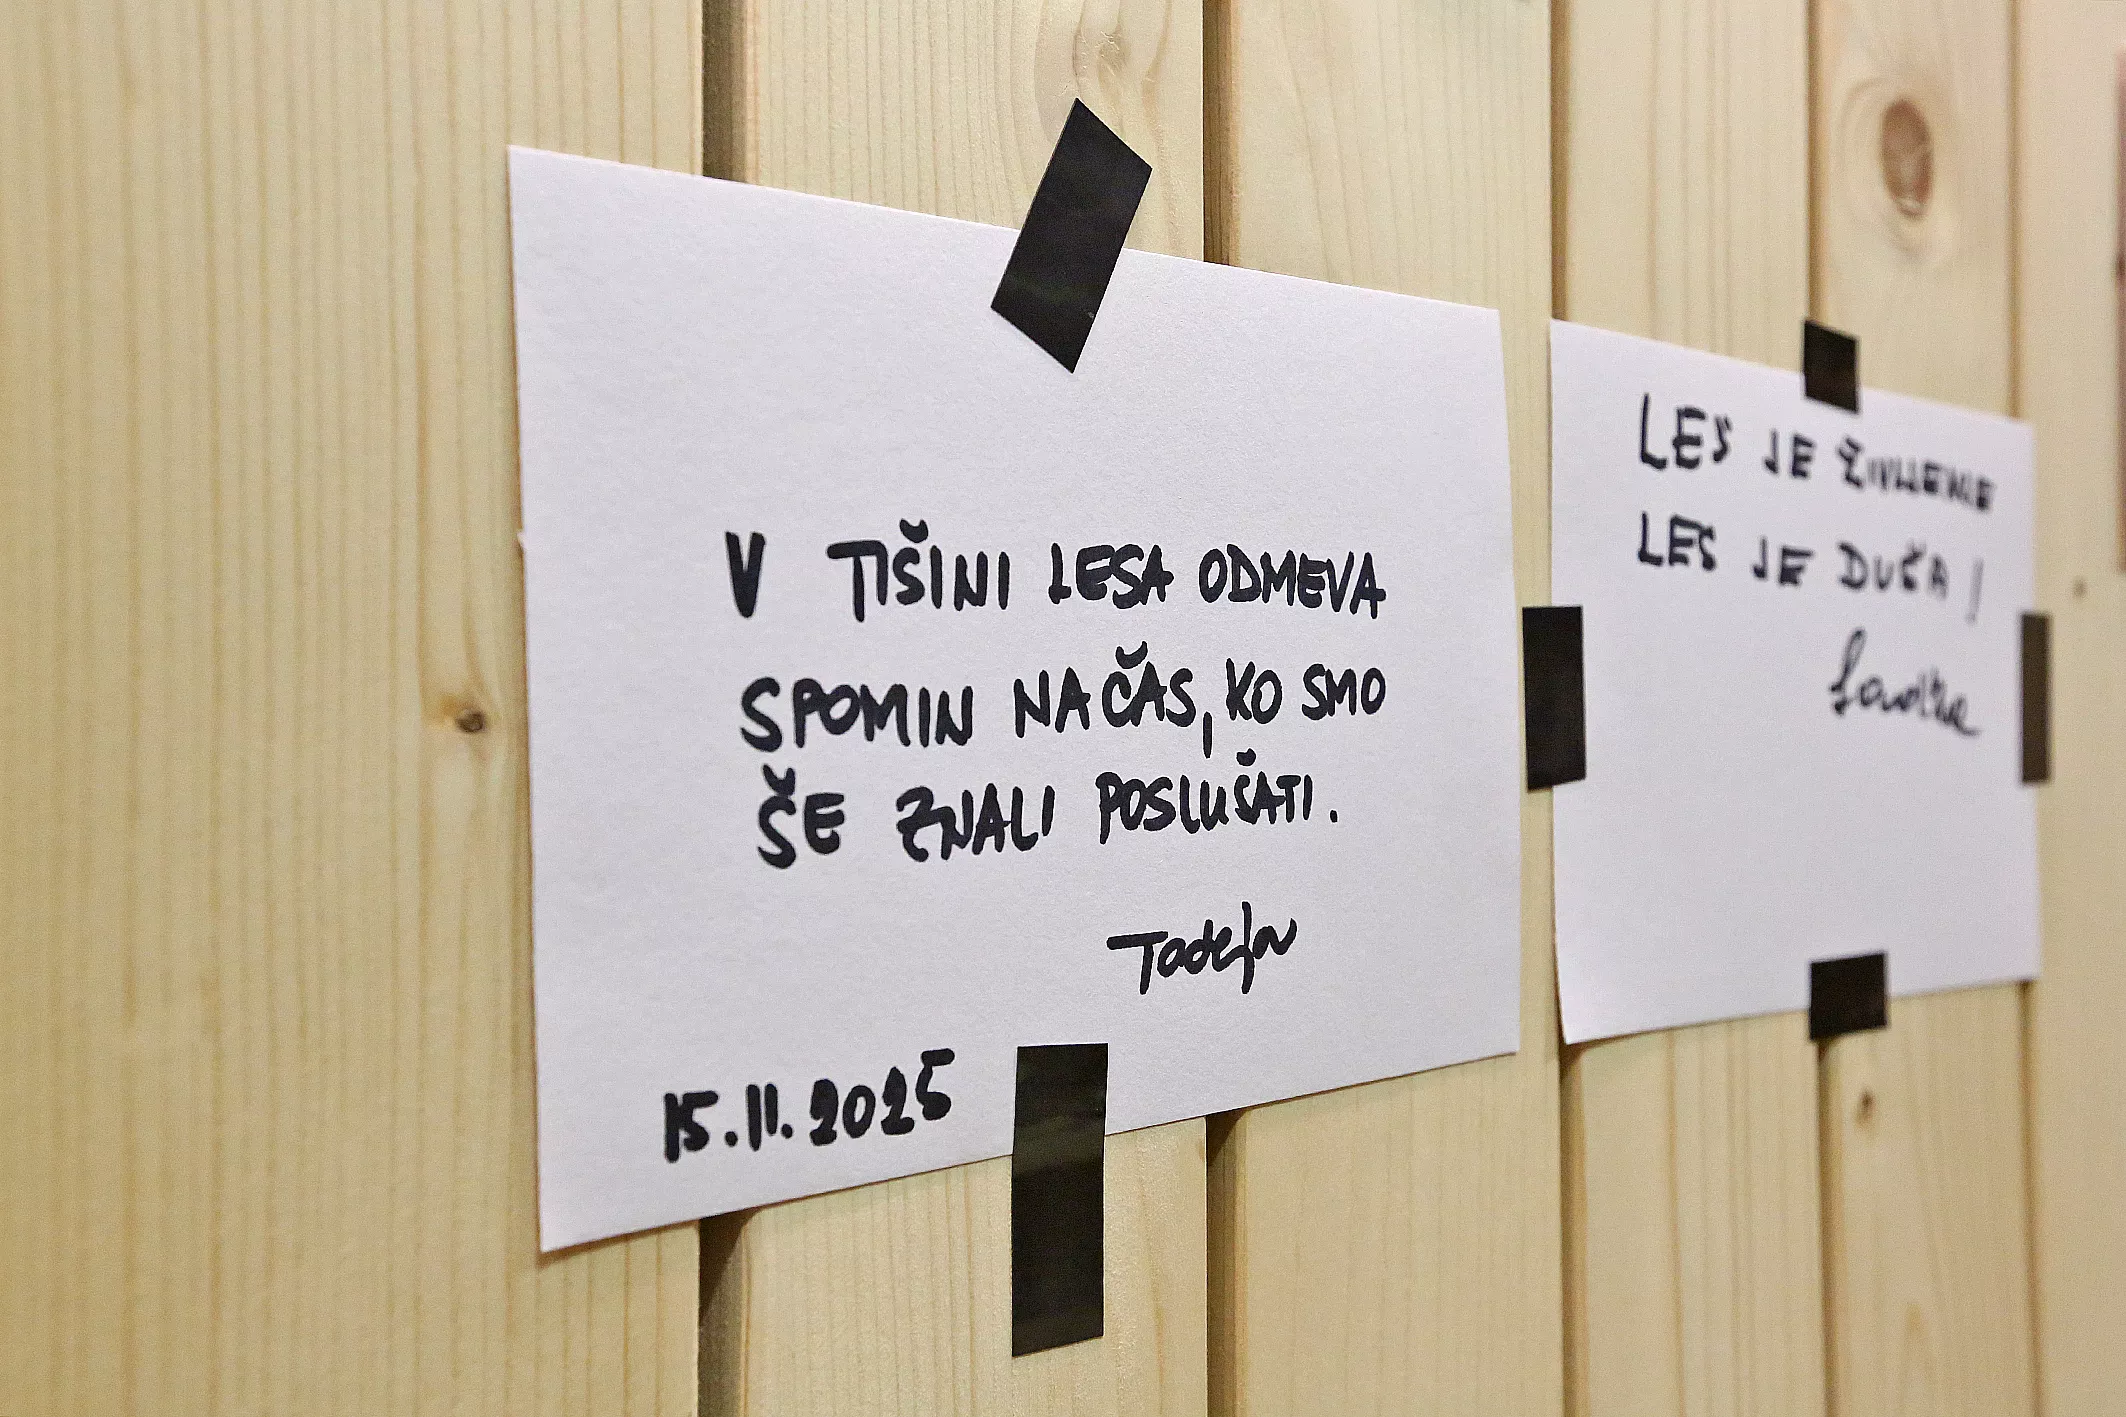 V TIŠINI LESA ODMEVA
SPOMIN NA ČAS, KO SMO
ŠE ZNALI POSLUŠATI.
Tadeja
15.11.2025
LES JE ŽIVLJENJE
LES JE DUŠA!